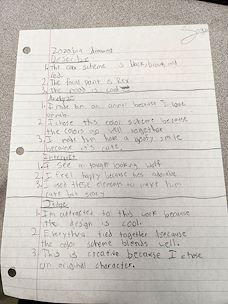 Describe
1. The color scheme is black, brown, and
red.
2. The focal point is Rex
3. The mood is cool
Analyze
1. I made him an animal because I love
2. I chose this color scheme because
the colors go well together
3. I made him have a goofy smile
because it's cute.
Interpret
1. I see a tough looking wolf
2. I feel happy because he's adorable
3. I used these elements to make him
cute but scary
Judge
1. I'm attracted to this work because
the design is cool.
2. Everything tied together because
the color scheme blends well.
3. This is creative because I chose
an original character.